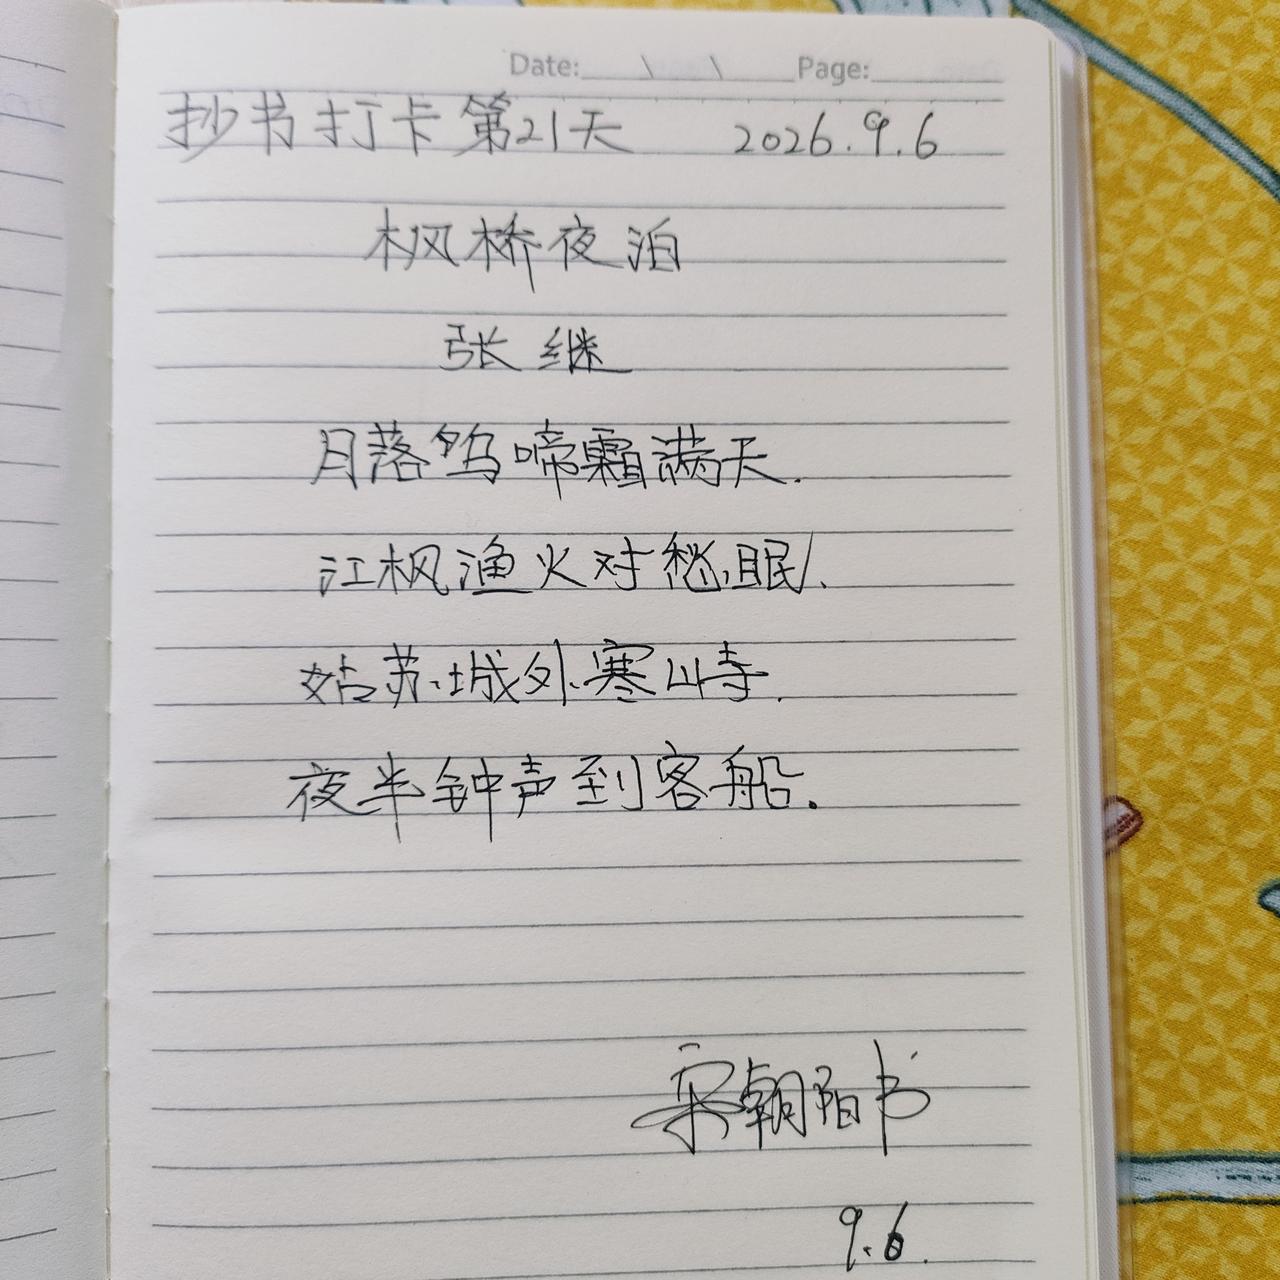 Date: \ \ Page:
抄书打卡第21天 2026.9.6
枫桥夜泊
张继
月落乌啼霜满天.
江枫渔火对愁眠.
姑苏城外寒山寺.
夜半钟声到客船.
宋朝阳书
9.6.